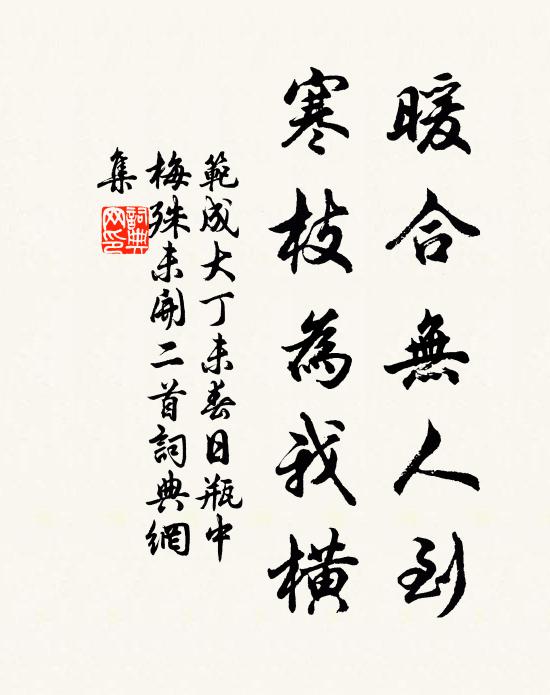 暖合無人到
寒枝為我橫
範成大丁未春日瓶中
梅殊未開二首詞典網
集
詞典
网